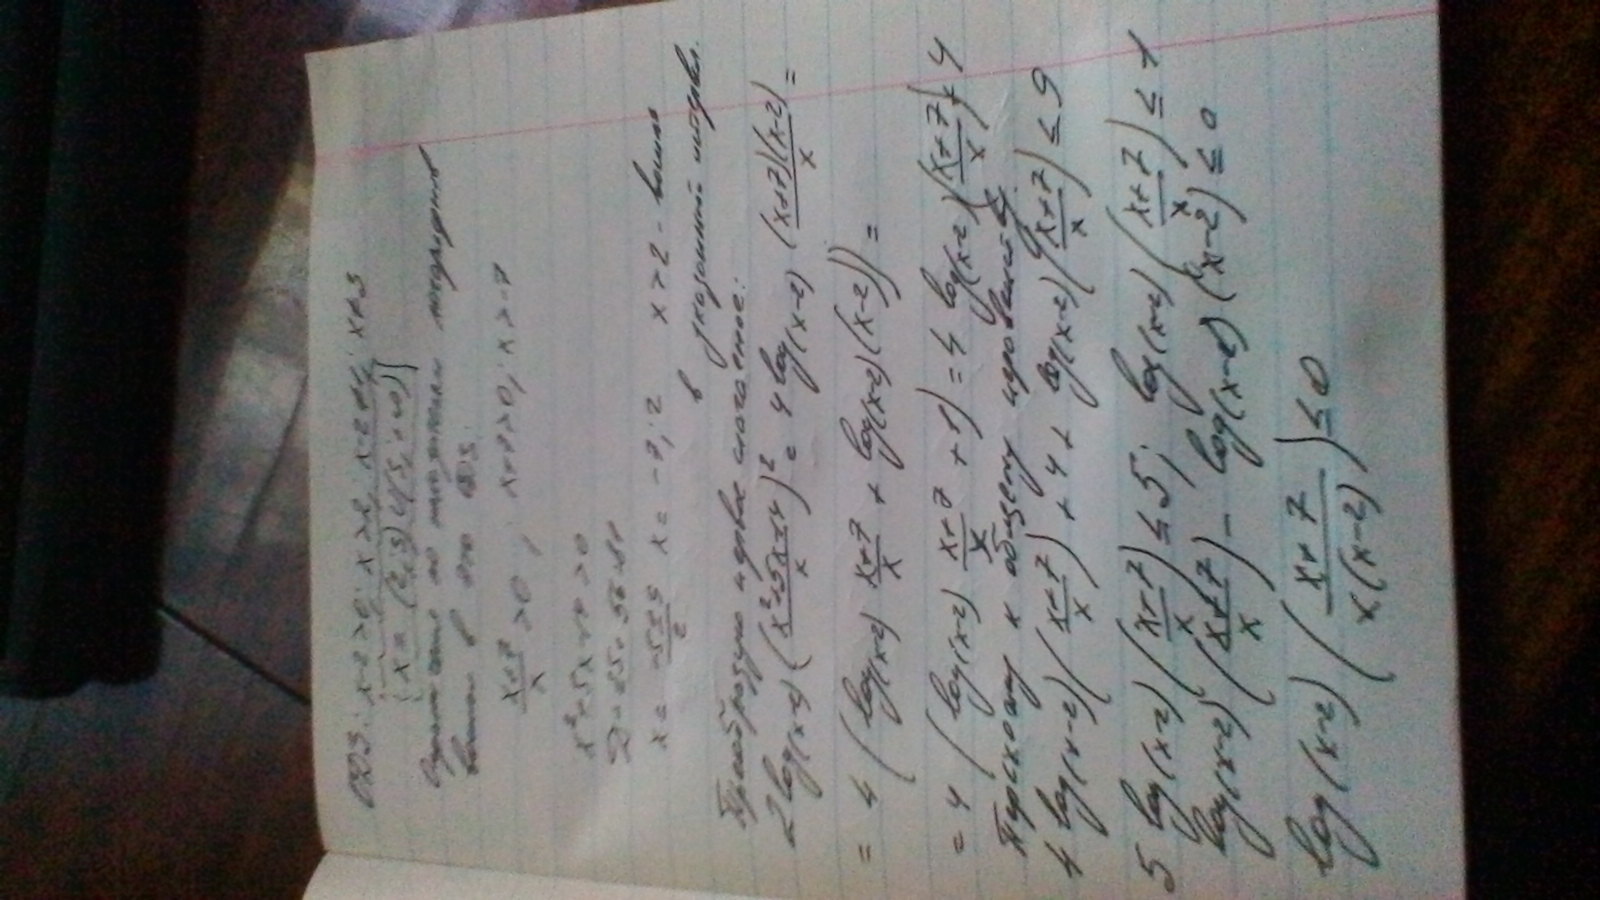 ОДЗ: x-2>0; x>2; x-2≠1; x≠3
x = (2;3)∪(3;+∞)
в это ОДЗ:
(x+7)/x > 0; x+7>0; x>-7
x²+5x-14>0
D=25+56=81
x = (-5±9)/2 x = -7; 2 x>2 - 
в указанный интервал.
Преобразую первое слагаемое:
2 log(x-2) ((x²+5x-14)/x)² = 4 log(x-2) ((x+7)(x-2)/x) =
= 4 (log(x-2) (x+7)/x + log(x-2)(x-2)) =
= 4 (log(x-2) (x+7)/x + 1) = 4 log(x-2) ((x+7)/x) + 4
Перехожу к общему неравенству:
4 log(x-2) ((x+7)/x) + 4 + log(x-2) ((x+7)/x) ≤ 9
5 log(x-2) ((x+7)/x) ≤ 5; log(x-2) ((x+7)/x) ≤ 1
log(x-2) ((x+7)/x) - log(x-2) (x-2) ≤ 0
log(x-2) ((x+7)/(x(x-2))) ≤ 0